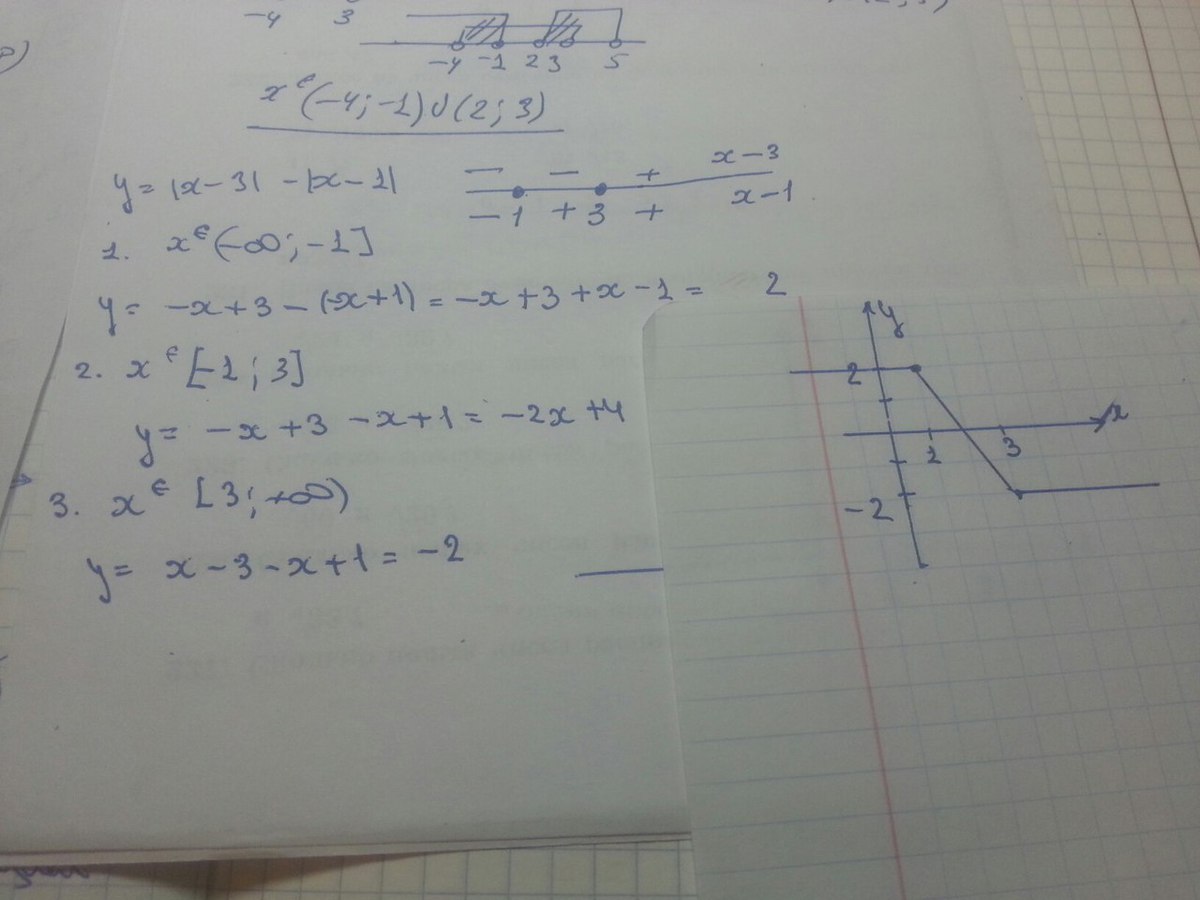 -4 3
-4 -1 2 3 5
x ∈ (-4; -1) ∪ (2; 3)
y = |x-3| - |x-1|
- - + x-3
- 1 + 3 + x-1
1. x ∈ (-∞; -1]
y = -x+3-(-x+1) = -x+3+x-1 = 2
2. x ∈ [-1; 3]
y = -x+3-x+1 = -2x+4
3. x ∈ [3; +∞)
y = x-3-x+1 = -2
y
2
x
1 3
-2